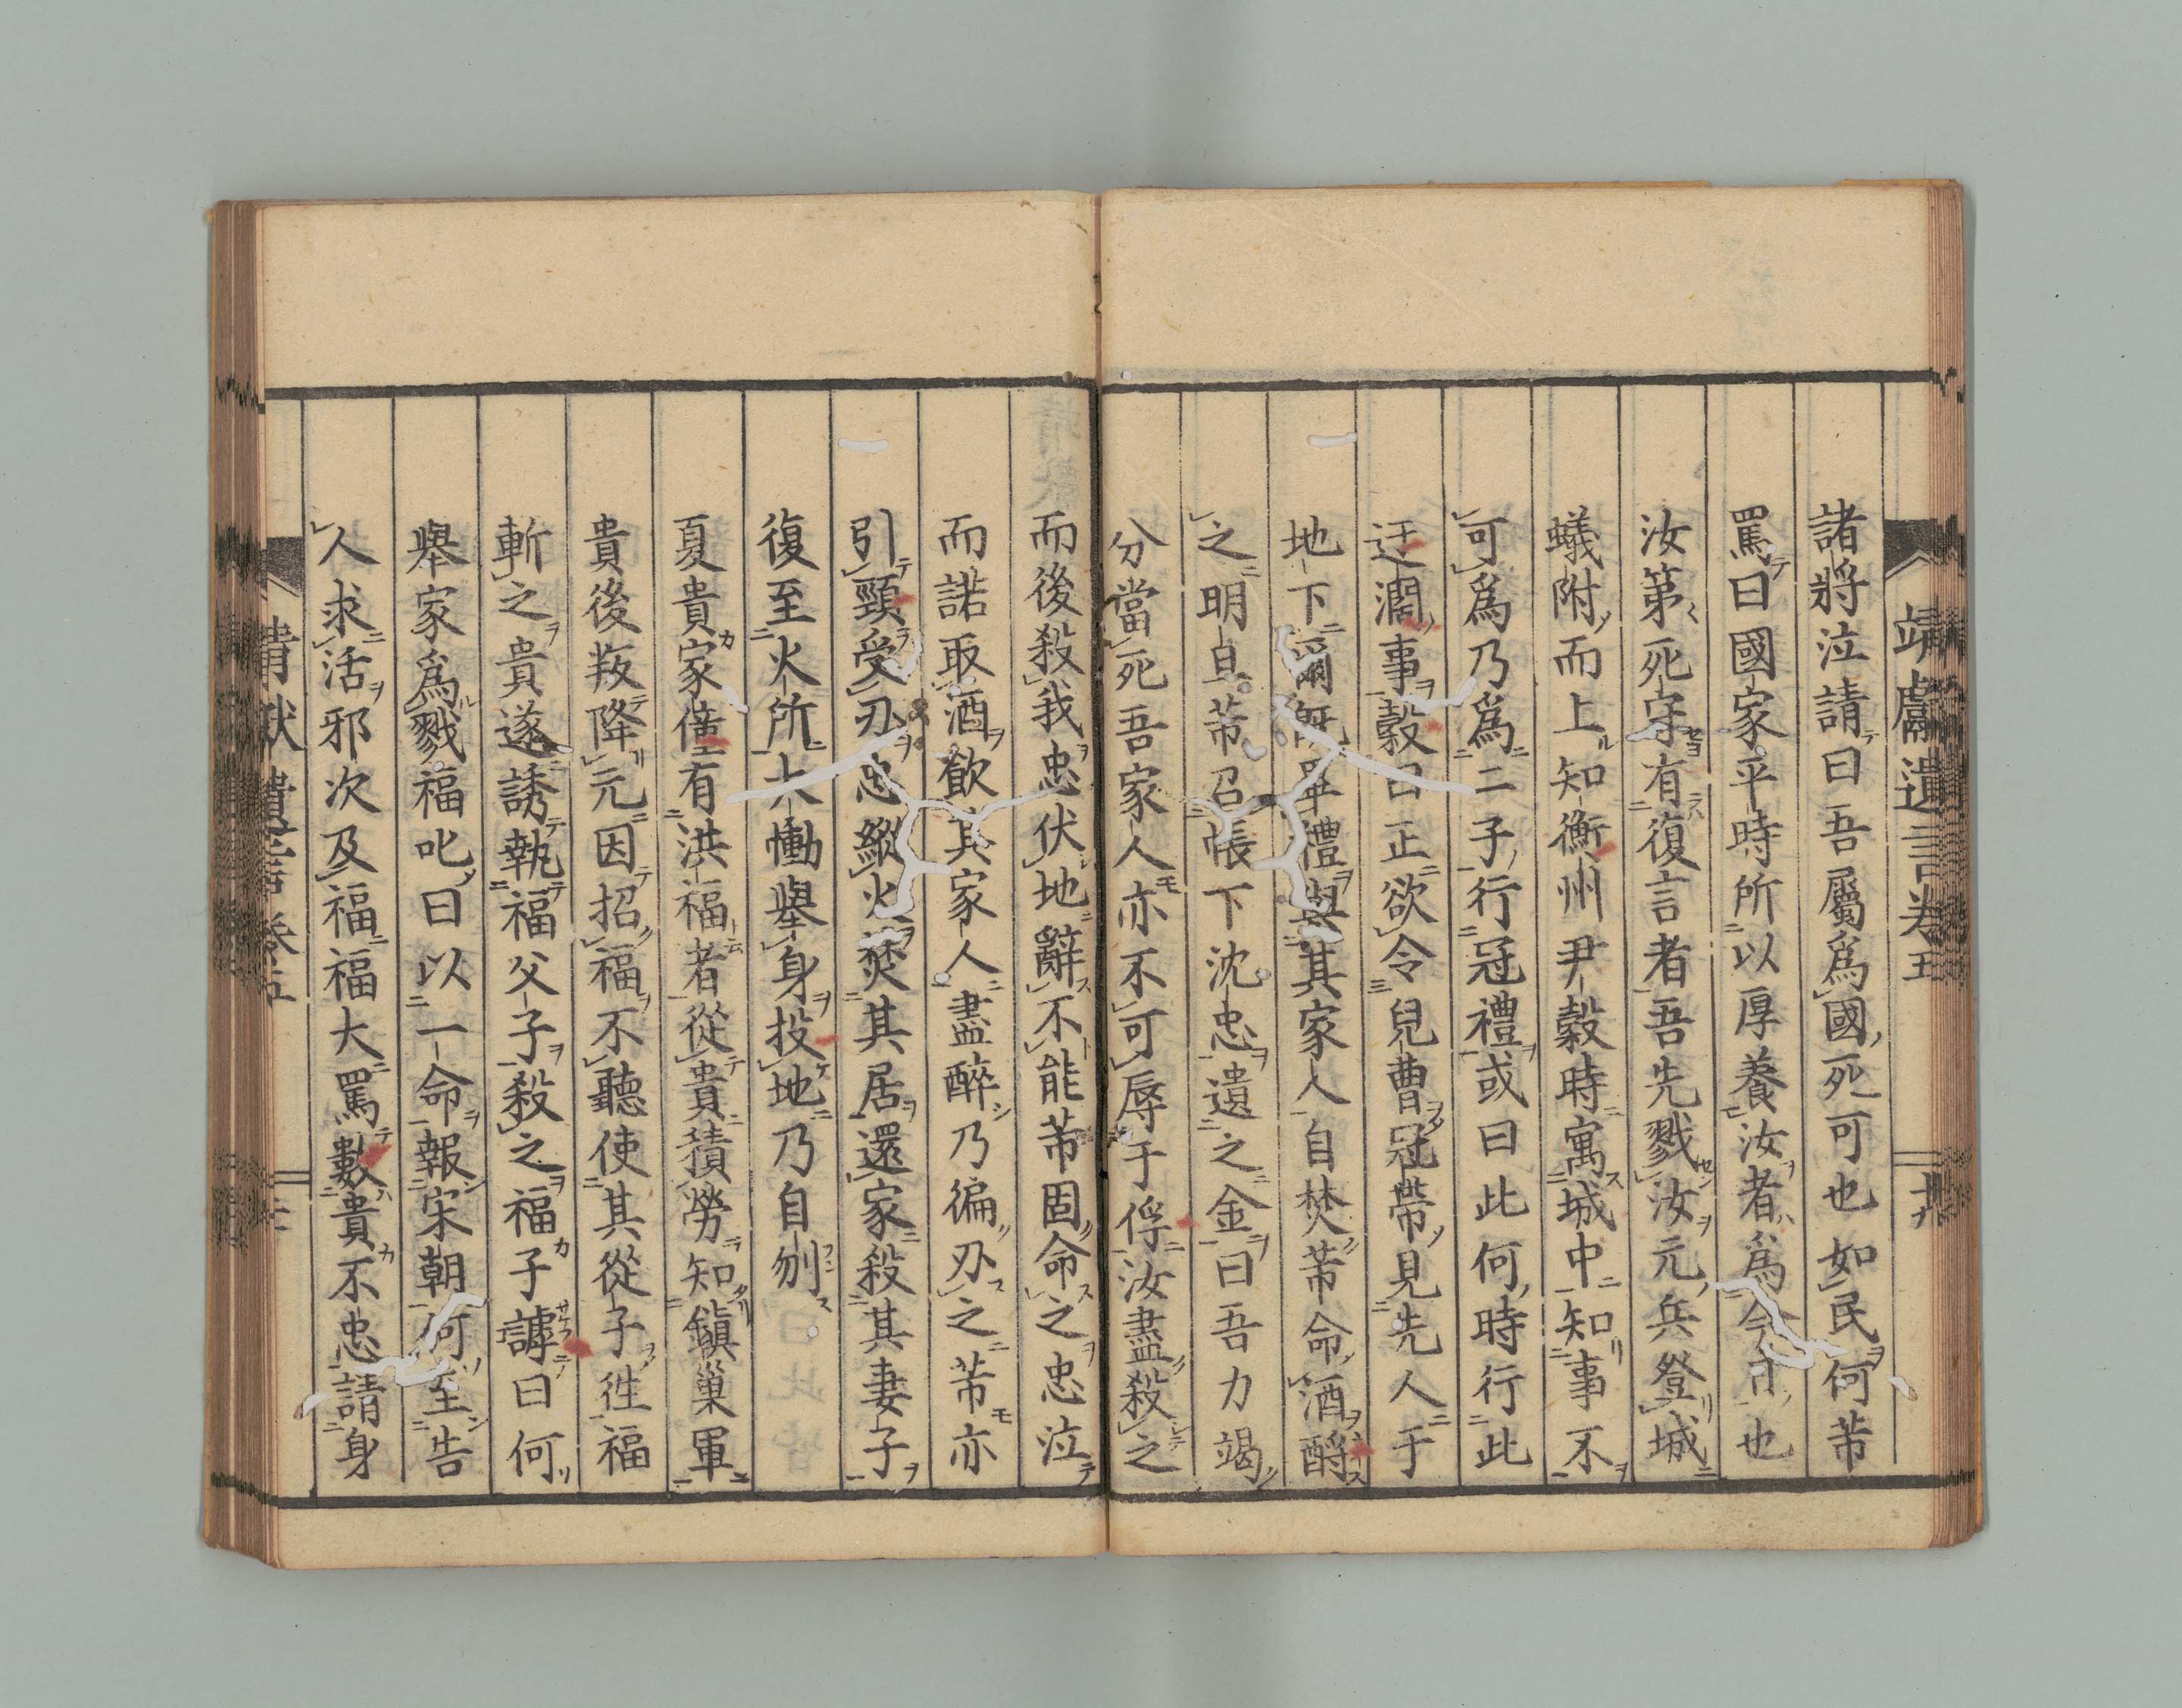 靖獻遺言卷五
廿九
諸將泣請曰吾屬爲國死可也如民何芾
罵曰國家平時所以厚養汝者爲今日也
汝第死守有復言者吾先戮汝元兵登城
蟻附而上知衡州尹穀時寓城中知事不
可爲乃爲二子行冠禮或曰此何時行此
迂濶事穀曰正欲令兒曹冠帶見先人于
地下爾既畢禮與其家人自焚芾命酒酹
之明旦芾召帳下沈忠遺之金曰吾力竭
分當死吾家人亦不可辱于俘汝盡殺之
而後殺我忠伏地辭不能芾固命之忠泣
而諾取酒飲其家人盡醉乃徧刃之芾亦
引頸受刃忠縱火焚其居還家殺其妻子
復至火所大慟擧身投地乃自刎
夏貴家僮有洪福者從貴積勞知鎭巢軍
貴後叛降元因招福不聽使其從子往福
斬之貴遂誘執福父子殺之福子謼曰何
擧家爲戮福叱曰以一命報宋朝何至告
人求活邪次及福福大罵數貴不忠請身
靖獻遺言卷五